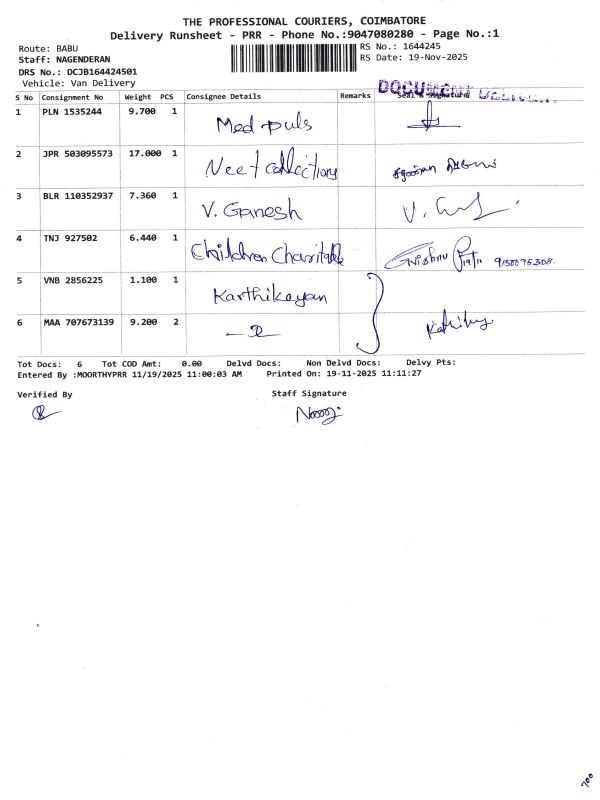 THE PROFESSIONAL COURIERS, COIMBATORE
Delivery Runsheet - PRR - Phone No.:9047080280 - Page No.:1
Route: BABU
RS No.: 1644245
Staff: NAGENDERAN
RS Date: 19-Nov-2025
DRS No.: DCJB164424501
Vehicle: Van Delivery
DOCUMENT
S No Consignment No Weight PCS Consignee Details Remarks Seal & Signature
1 PLN 1535244 9.700 1 Med puls
2 JPR 503095573 17.000 1 Neet collections
3 BLR 110352937 7.360 1 V. Ganesh
4 TNJ 927502 6.440 1 Children Charitable
5 VNB 2856225 1.100 1 Karthikeyan
6 MAA 707673139 9.200 2
Tot Docs: 6 Tot COD Amt: 0.00 Delvd Docs: Non Delvd Docs: Delvy Pts:
Entered By :MOORTHYPRR 11/19/2025 11:00:03 AM Printed On: 19-11-2025 11:11:27
Verified By Staff Signature
700